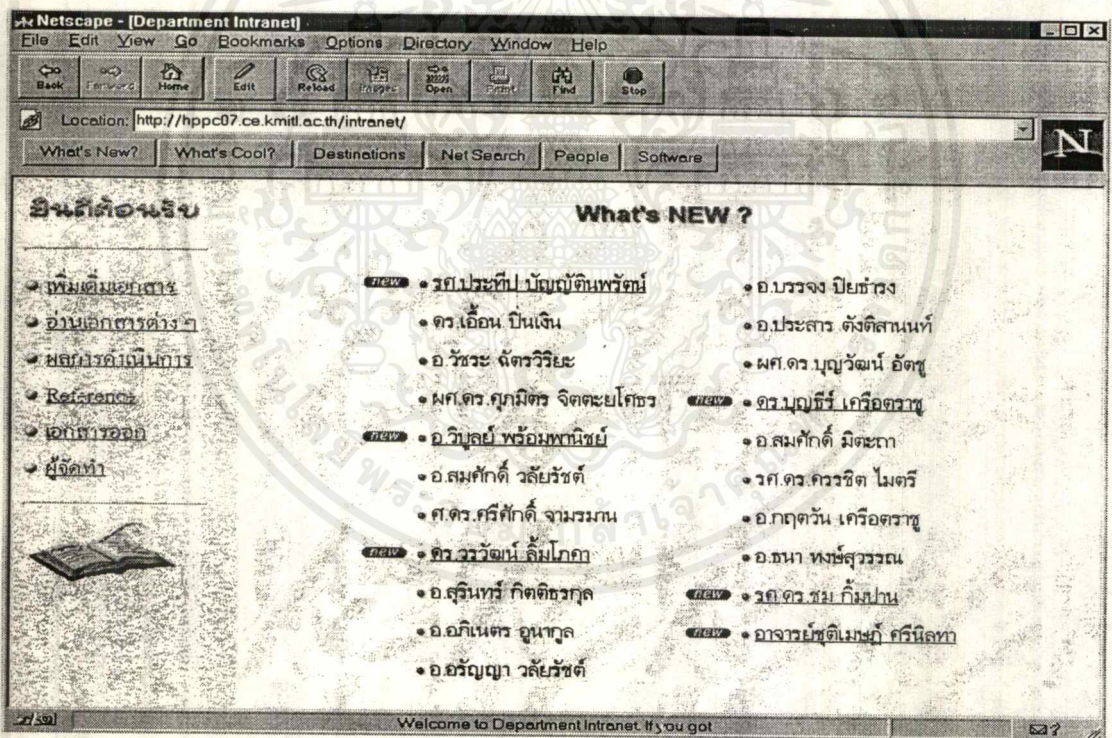 Netscape - [Department Intranet]
File Edit View Go Bookmarks Options Directory Window Help
Back Forward Home Edit Reload Images Open Print Find Stop
Location: http://hppc07.ce.kmitl.ac.th/intranet/
What's New? What's Cool? Destinations Net Search People Software
N
ยินดีต้อนรับ
เพิ่มเติมเอกสาร
อ่านเอกสารต่าง ๆ
ผลการดำเนินการ
Reference
เอกสารออก
ผู้จัดทำ
What's NEW ?
new รศ.ประทีป บัญญัตินพรัตน์
ดร.เอื้อน ปิ่นเงิน
อ.วัชระ ฉัตรวิริยะ
ผศ.ดร.ศุภมิตร จิตตะยโศธร
new อ.วิบูลย์ พร้อมพานิชย์
อ.สมศักดิ์ วลัยรัชต์
ศ.ดร.ศรีศักดิ์ จามรมาน
new ดร.วรวัฒน์ ลิ้มโภคา
อ.สุรินทร์ กิตติธรกุล
อ.อภิเนตร อูนากูล
อ.อรัญญา วลัยรัชต์
อ.บรรจง ปิยธำรง
อ.ประสาร ตังติสานนท์
ผศ.ดร.บุญวัฒน์ อัตชู
new ดร.บุญธีร์ เครือตราชู
อ.สมศักดิ์ มิตะถา
รศ.ดร.ครรชิต ไมตรี
อ.กฤตวัน เครือตราชู
อ.ธนา หงษ์สุวรรณ
new รศ.ดร.ชม กิ้มปาน
new อาจารย์ชุติเมษฏ์ ศรีนิลทา
Welcome to Department Intranet. If you got